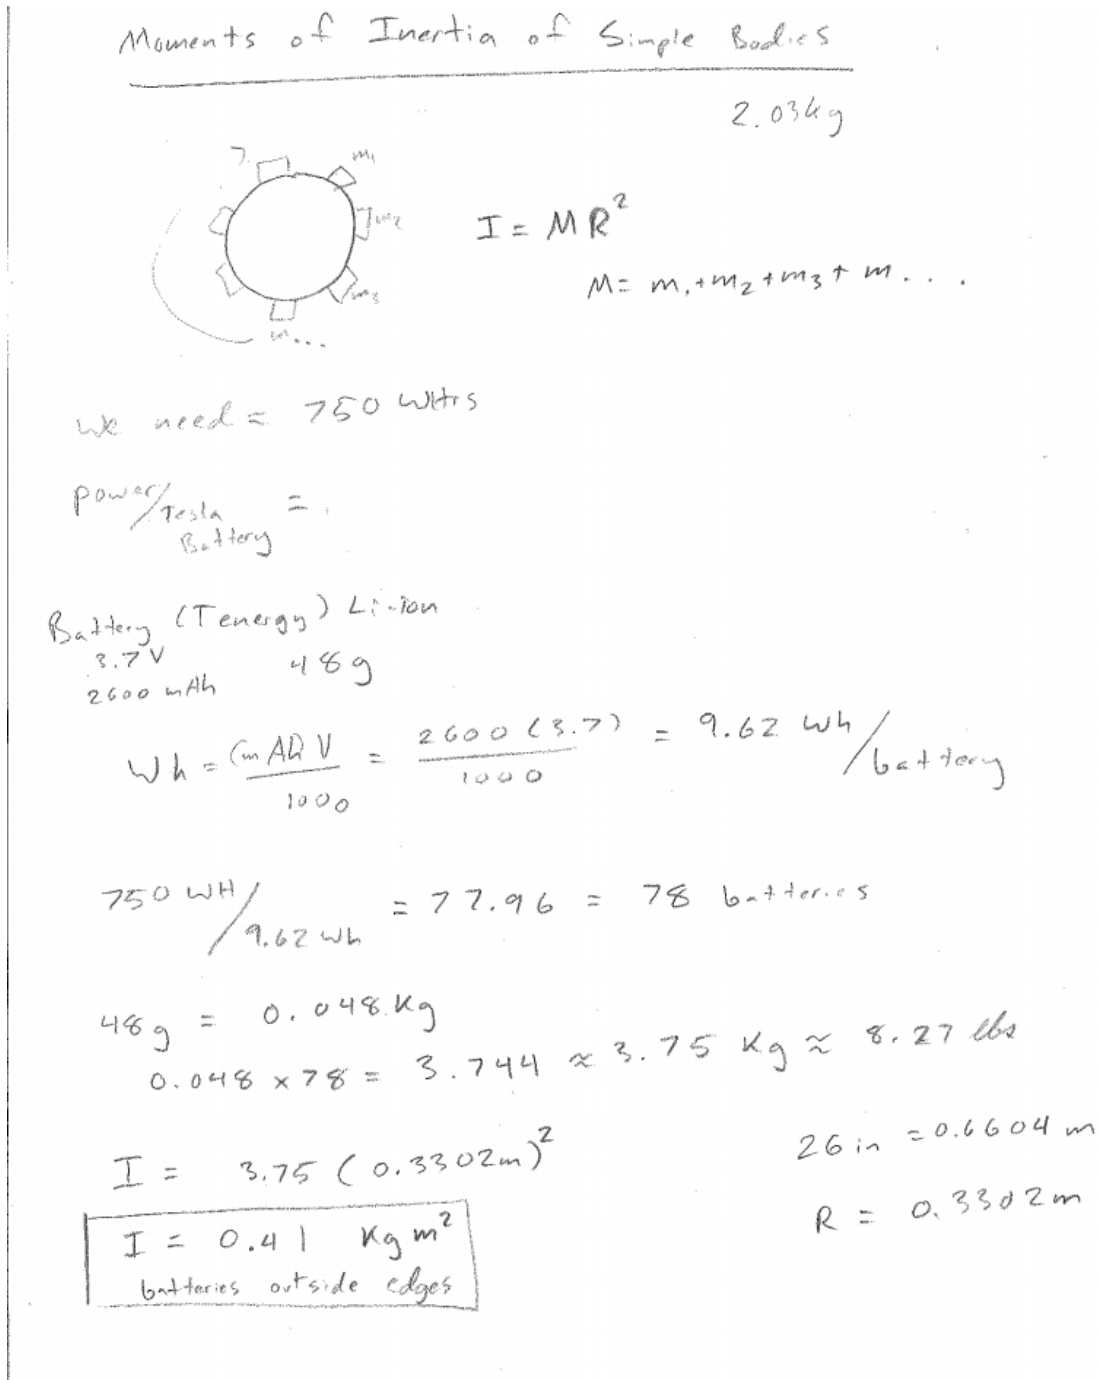 Moments of Inertia of Simple Bodies
2.03kg
m₁
m₂
m₃
m...
I = MR²
M = m₁+m₂+m₃+m....
We need = 750 WHrs
Power/Tesla Battery =
Battery (Tenergy) Li-ion
3.7V 48g
2600 mAh
Wh = (mAh)V/1000 = 2600(3.7)/1000 = 9.62 Wh/battery
750 WH/9.62 Wh = 77.96 = 78 batteries
48g = 0.048 Kg
0.048 x 78 = 3.744 ≈ 3.75 Kg ≈ 8.27 lbs
26 in = 0.6604 m
I = 3.75 (0.3302m)²
R = 0.3302m
I = 0.41 Kg m²
batteries outside edges